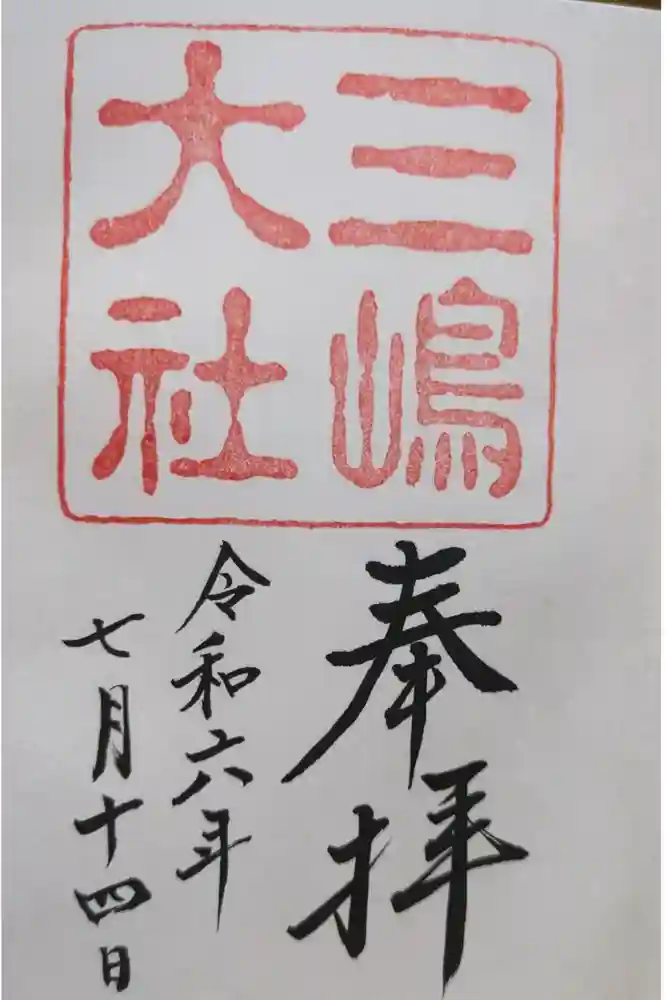 三嶋
大社
奉拝
令和六年
七月十四日